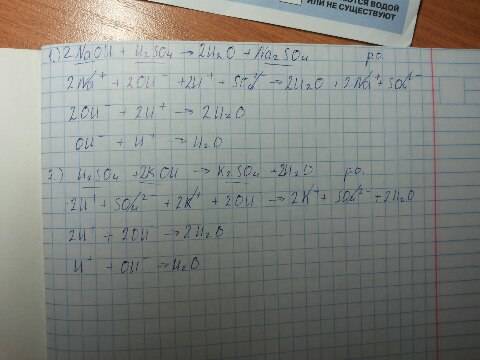 ЮТСЯ ВОДОЙ
ИЛИ НЕ СУЩЕСТВУЮТ
1.) 2NaOH + H₂SO₄ → 2H₂O + Na₂SO₄ р.о.
2Na⁺ + 2OH⁻ + 2H⁺ + SO₄²⁻ → 2H₂O + 2Na⁺ + SO₄²⁻
2OH⁻ + 2H⁺ → 2H₂O
OH⁻ + H⁺ → H₂O
2.) H₂SO₄ + 2KOH → K₂SO₄ + 2H₂O р.о.
2H⁺ + SO₄²⁻ + 2K⁺ + 2OH⁻ → 2K⁺ + SO₄²⁻ + 2H₂O
2H⁺ + 2OH⁻ → 2H₂O
H⁺ + OH⁻ → H₂O